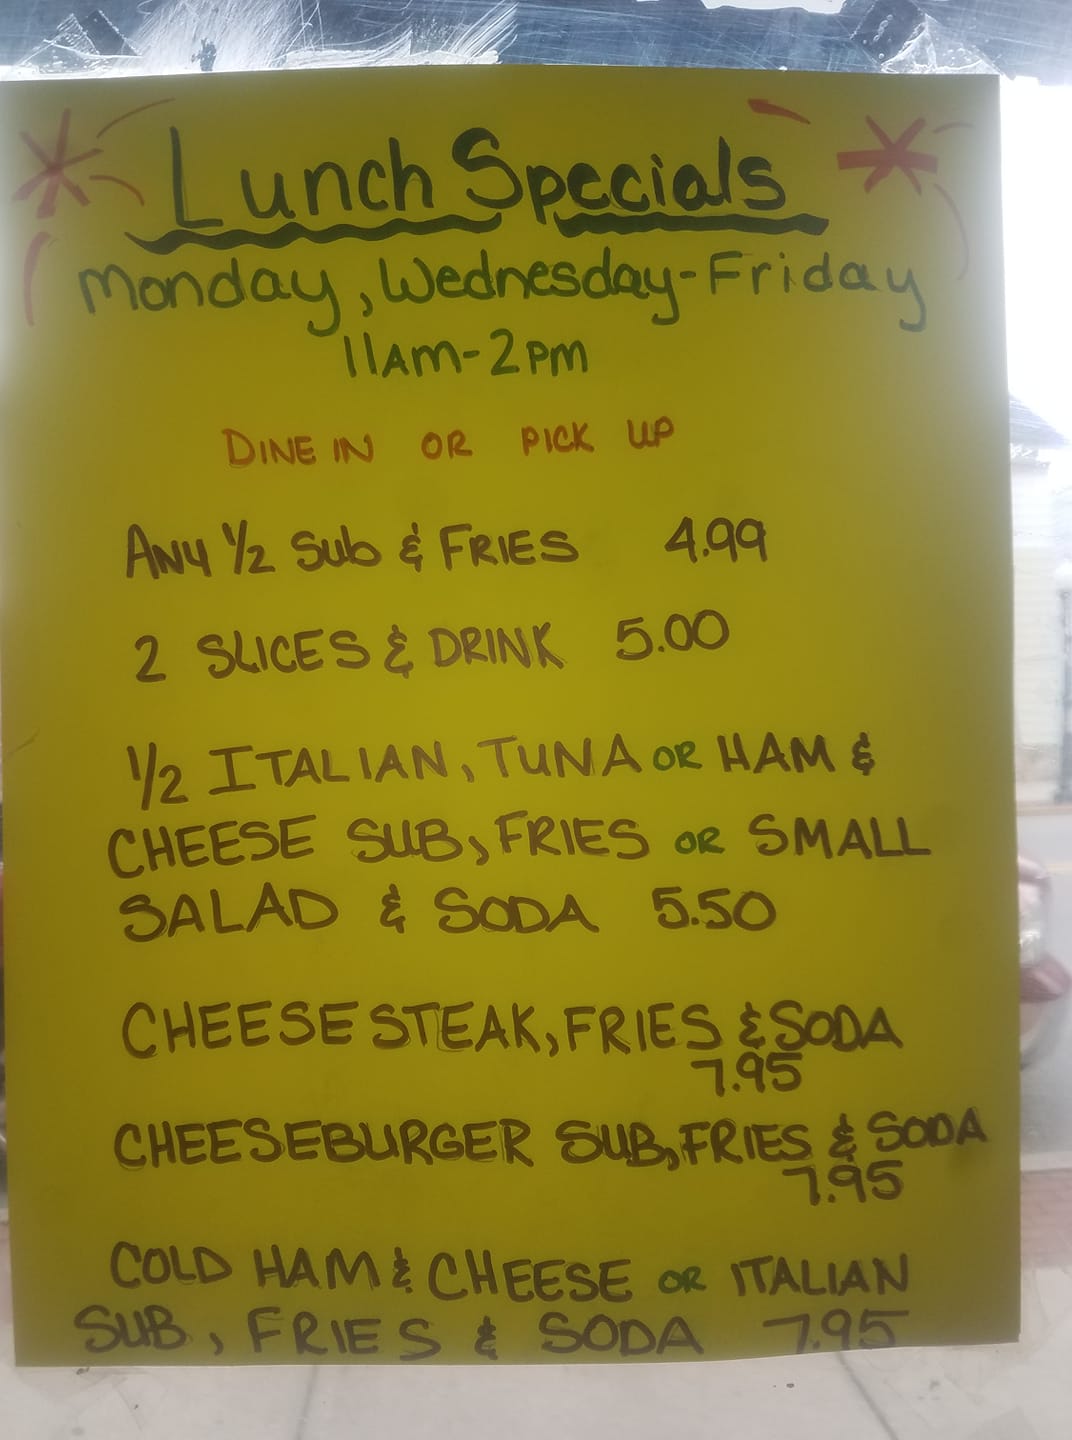 Lunch Specials
Monday, Wednesday-Friday
11AM-2PM
DINE IN OR PICK UP
ANY 1/2 Sub & FRIES 4.99
2 SLICES & DRINK 5.00
1/2 ITALIAN, TUNA OR HAM &
CHEESE SUB, FRIES OR SMALL
SALAD & SODA 5.50
CHEESE STEAK, FRIES & SODA
7.95
CHEESEBURGER SUB, FRIES & SODA
7.95
COLD HAM & CHEESE OR ITALIAN
SUB, FRIES & SODA 7.95